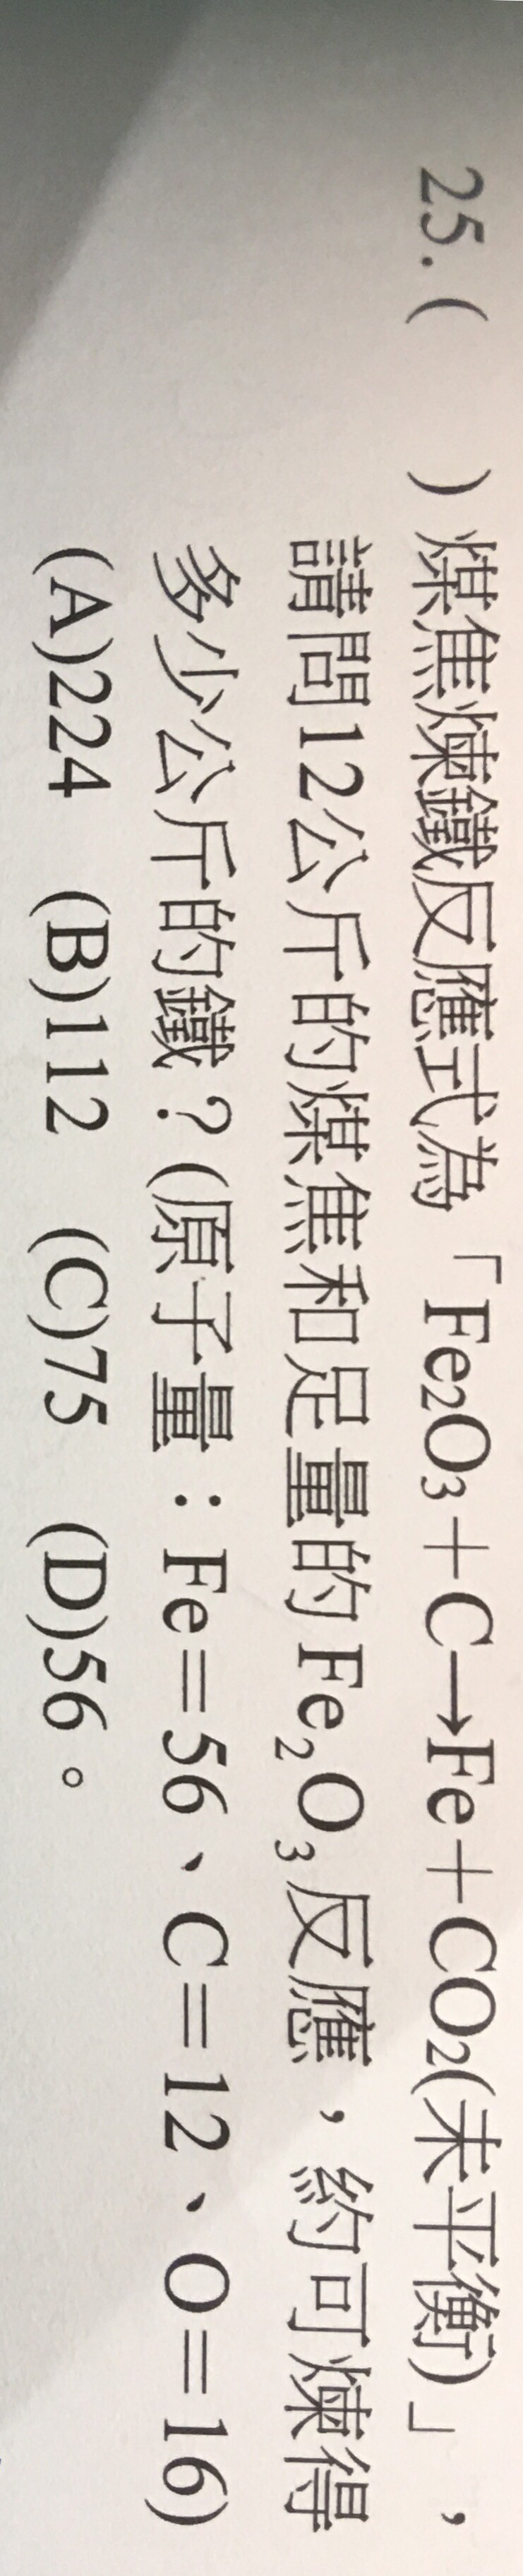 25.(　　)煤焦煉鐵反應式為「Fe₂O₃＋C→Fe＋CO₂(未平衡)」，
請問12公斤的煤焦和足量的Fe₂O₃反應，約可煉得
多少公斤的鐵？(原子量：Fe＝56、C＝12、O＝16)
(A)224　(B)112　(C)75　(D)56。